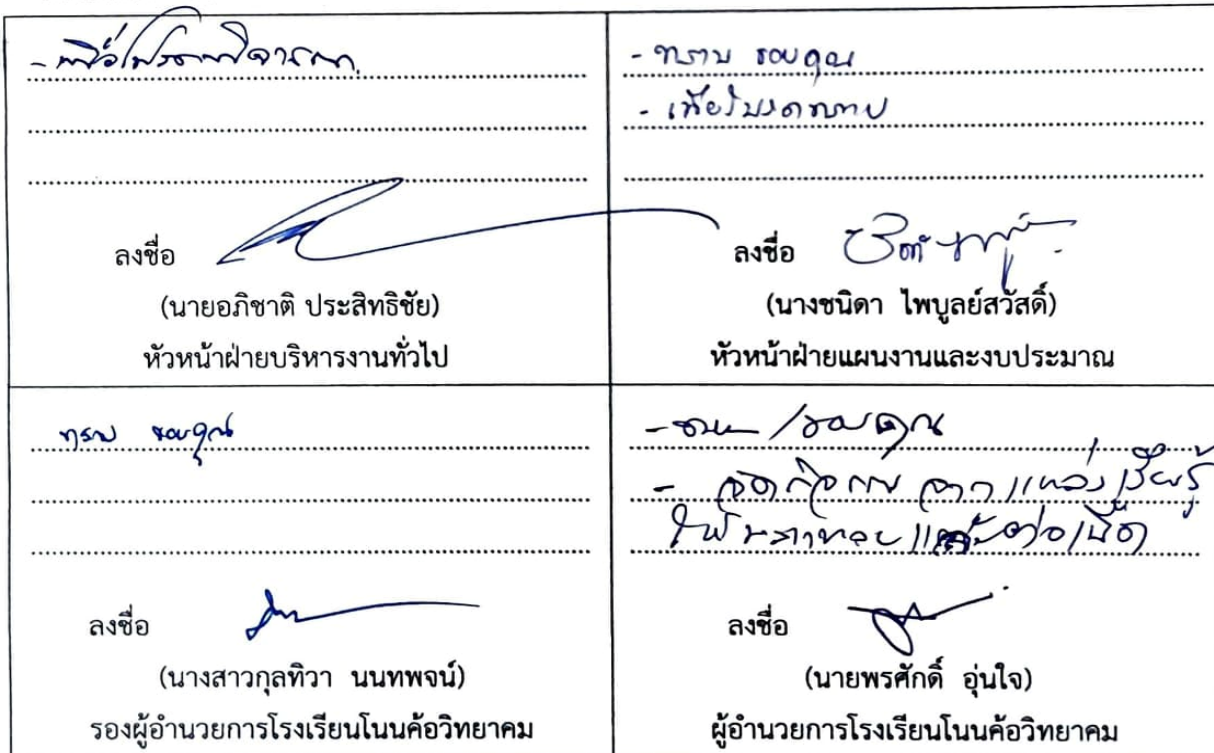 - เพื่อโปรดพิจารณา
ลงชื่อ
(นายอภิชาติ ประสิทธิชัย)
หัวหน้าฝ่ายบริหารงานทั่วไป
- ทราบ ขอบคุณ
- เพื่อโปรดทราบ
ลงชื่อ
(นางชนิดา ไพบูลย์สวัสดิ์)
หัวหน้าฝ่ายแผนงานและงบประมาณ
ทราบ ขอบคุณ
ลงชื่อ
(นางสาวกุลทิวา นนทพจน์)
รองผู้อำนวยการโรงเรียนโนนค้อวิทยาคม
- ทราบ/ขอบคุณ
- จัดกิจกรรม จากแหล่งเรียนรู้
ให้หลากหลาย
ลงชื่อ
(นายพรศักดิ์ อุ่นใจ)
ผู้อำนวยการโรงเรียนโนนค้อวิทยาคม